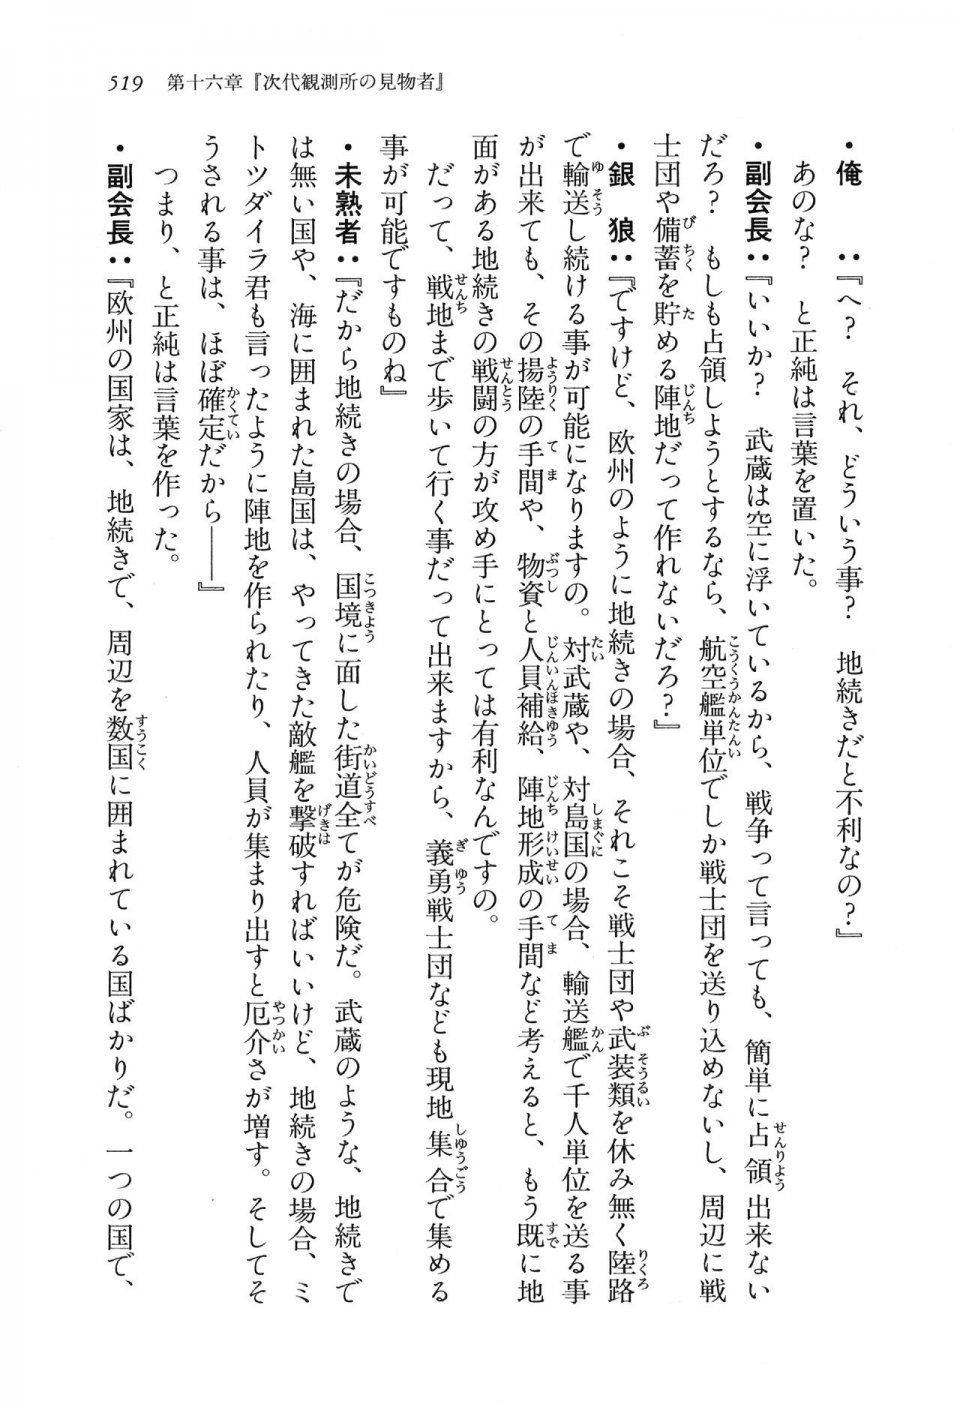 519　第十六章『次代観測所の見物者』
・俺　　：『へ？　それ、どういう事？　地続きだと不利なの？』
　あのな？　と正純は言葉を置いた。
・副会長：『いいか？　武蔵は空に浮いているから、戦争って言っても、簡単に占領出来ない
だろ？　もしも占領しようとするなら、航空艦単位でしか戦士団を送り込めないし、周辺に戦
士団や備蓄を貯める陣地だって作れないだろ？』
・銀　狼：『ですけど、欧州のように地続きの場合、それこそ戦士団や武装類を休み無く陸路
で輸送し続ける事が可能になりますの。対武蔵や、対島国の場合、輸送艦で千人単位を送る事
が出来ても、その揚陸の手間や、物資と人員補給、陣地形成の手間など考えると、もう既に地
面がある地続きの戦闘の方が攻め手にとっては有利なんですの。
　だって、戦地まで歩いて行く事だって出来ますから、義勇戦士団なども現地集合で集める
事が可能ですものね』
・未熟者：『だから地続きの場合、国境に面した街道全てが危険だ。武蔵のような、地続きで
は無い国や、海に囲まれた島国は、やってきた敵艦を撃破すればいいけど、地続きの場合、ミ
トツダイラ君も言ったように陣地を作られたり、人員が集まり出すと厄介さが増す。そしてそ
うされる事は、ほぼ確定だから――』
　つまり、と正純は言葉を作った。
・副会長：『欧州の国家は、地続きで、周辺を数国に囲まれている国ばかりだ。一つの国で、